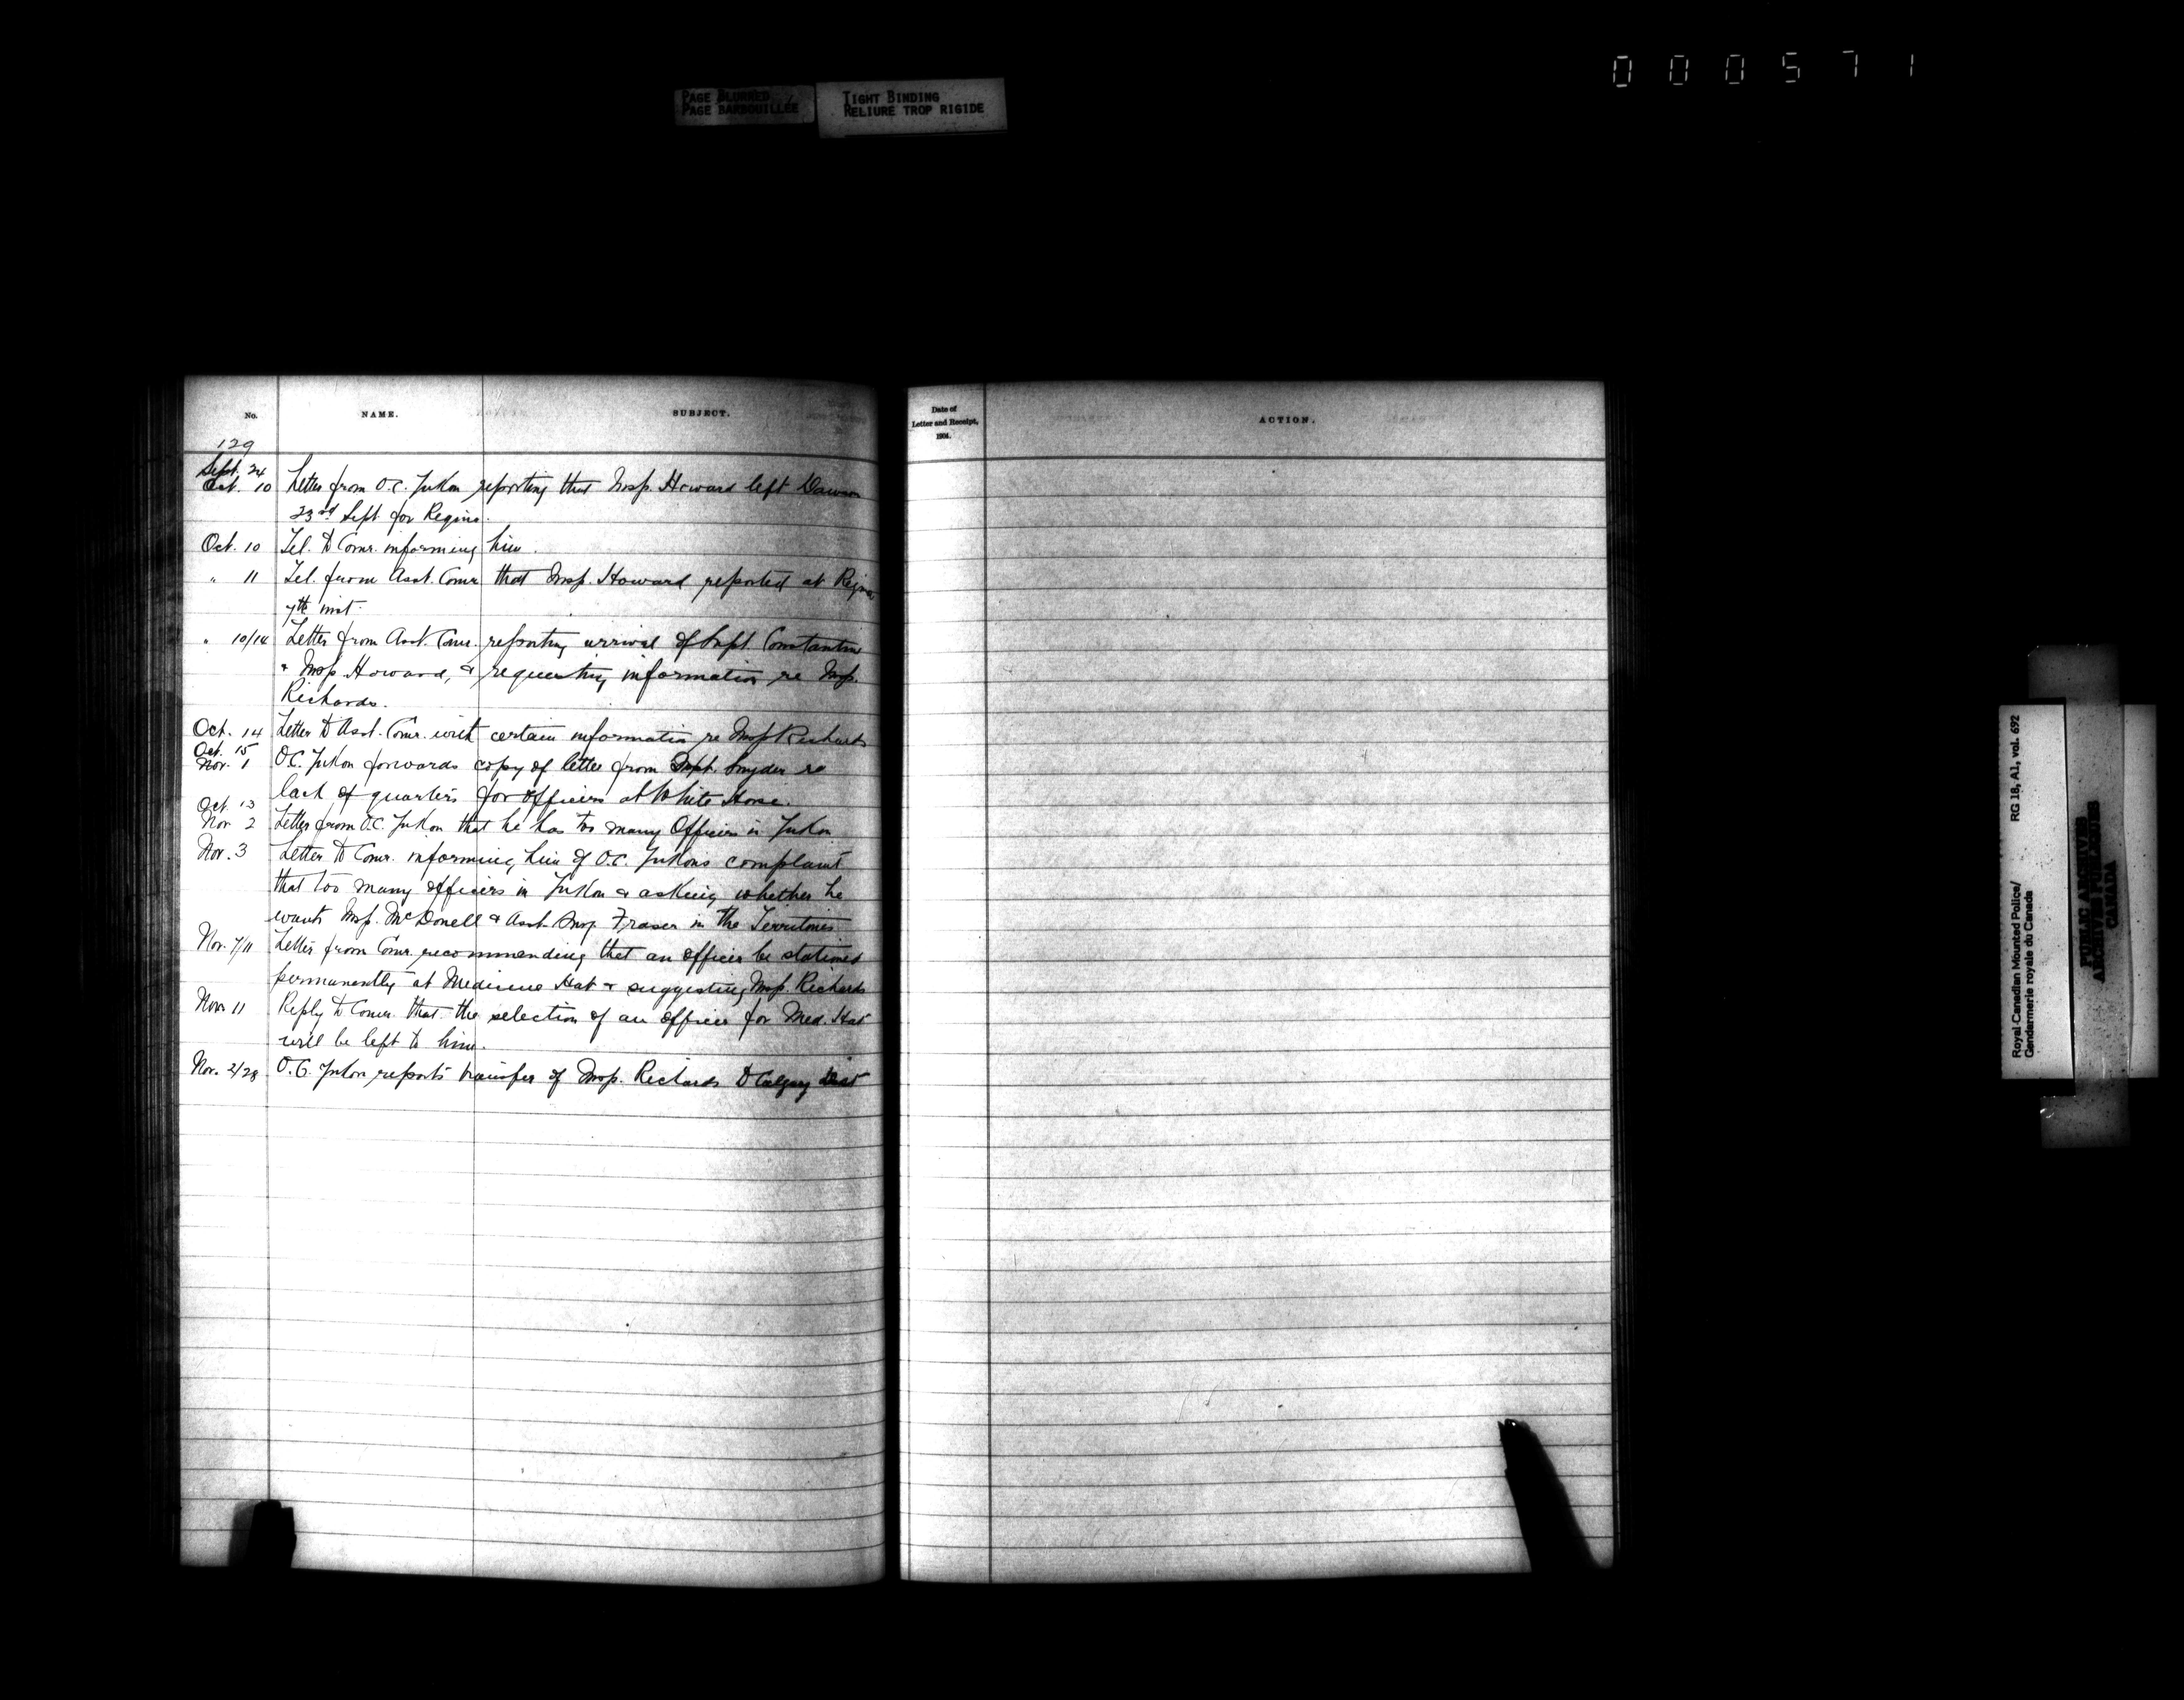 000571
PAGE BLURRED
PAGE BARBOUILLÉE
TIGHT BINDING
RELIURE TROP RIGIDE
No. NAME. SUBJECT.
129
Sept. 24
Oct. 10 Letter from O.C. Yukon reporting that Insp. Howard left Dawson
23rd Sept. for Regina.
Oct. 10 Tel. to Comr. informing him.
" 11 Tel. from Asst. Comr. that Insp. Howard reported at Regina
7th inst.
" 10/14 Letter from Asst. Comr. reporting arrival of Supt. Constantine
& Insp. Howard, & requesting information re Insp.
Richards.
Oct. 14 Letter to Asst. Comr. with certain information re Insp Richards
Oct. 15
Nov. 1 O.C. Yukon forwards copy of letter from Supt. Snyder re
lack of quarters for officers at White Horse.
Oct. 13
Nov 2 Letter from O.C. Yukon that he has too many Officers in Yukon
Nov. 3 Letter to Comr. informing him of O.C. Yukons complaint
that too many officers in Yukon & asking whether he
wants Insp. McDonell & Asst. Surg. Fraser in the Territories
Nov. 7/11 Letter from Comr. recommending that an officer be stationed
permanently at Medicine Hat & suggesting Insp. Richards
Nov. 11 Reply to Comr. that the selection of an officer for Med. Hat
will be left to him.
Nov. 2/28 O.C. Yukon reports transfer of Insp. Richards to Calgary Dist
Date of
Letter and Receipt,
1904.
ACTION.
Royal Canadian Mounted Police/
Gendarmerie royale du Canada
RG 18, A1, vol. 692
PUBLIC ARCHIVES
ARCHIVES PUBLIQUES
CANADA